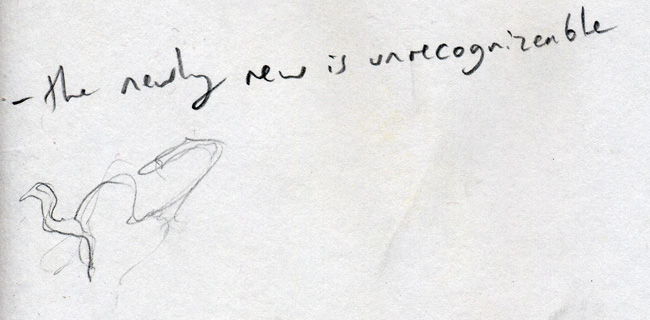 - the newly new is unrecognizenble